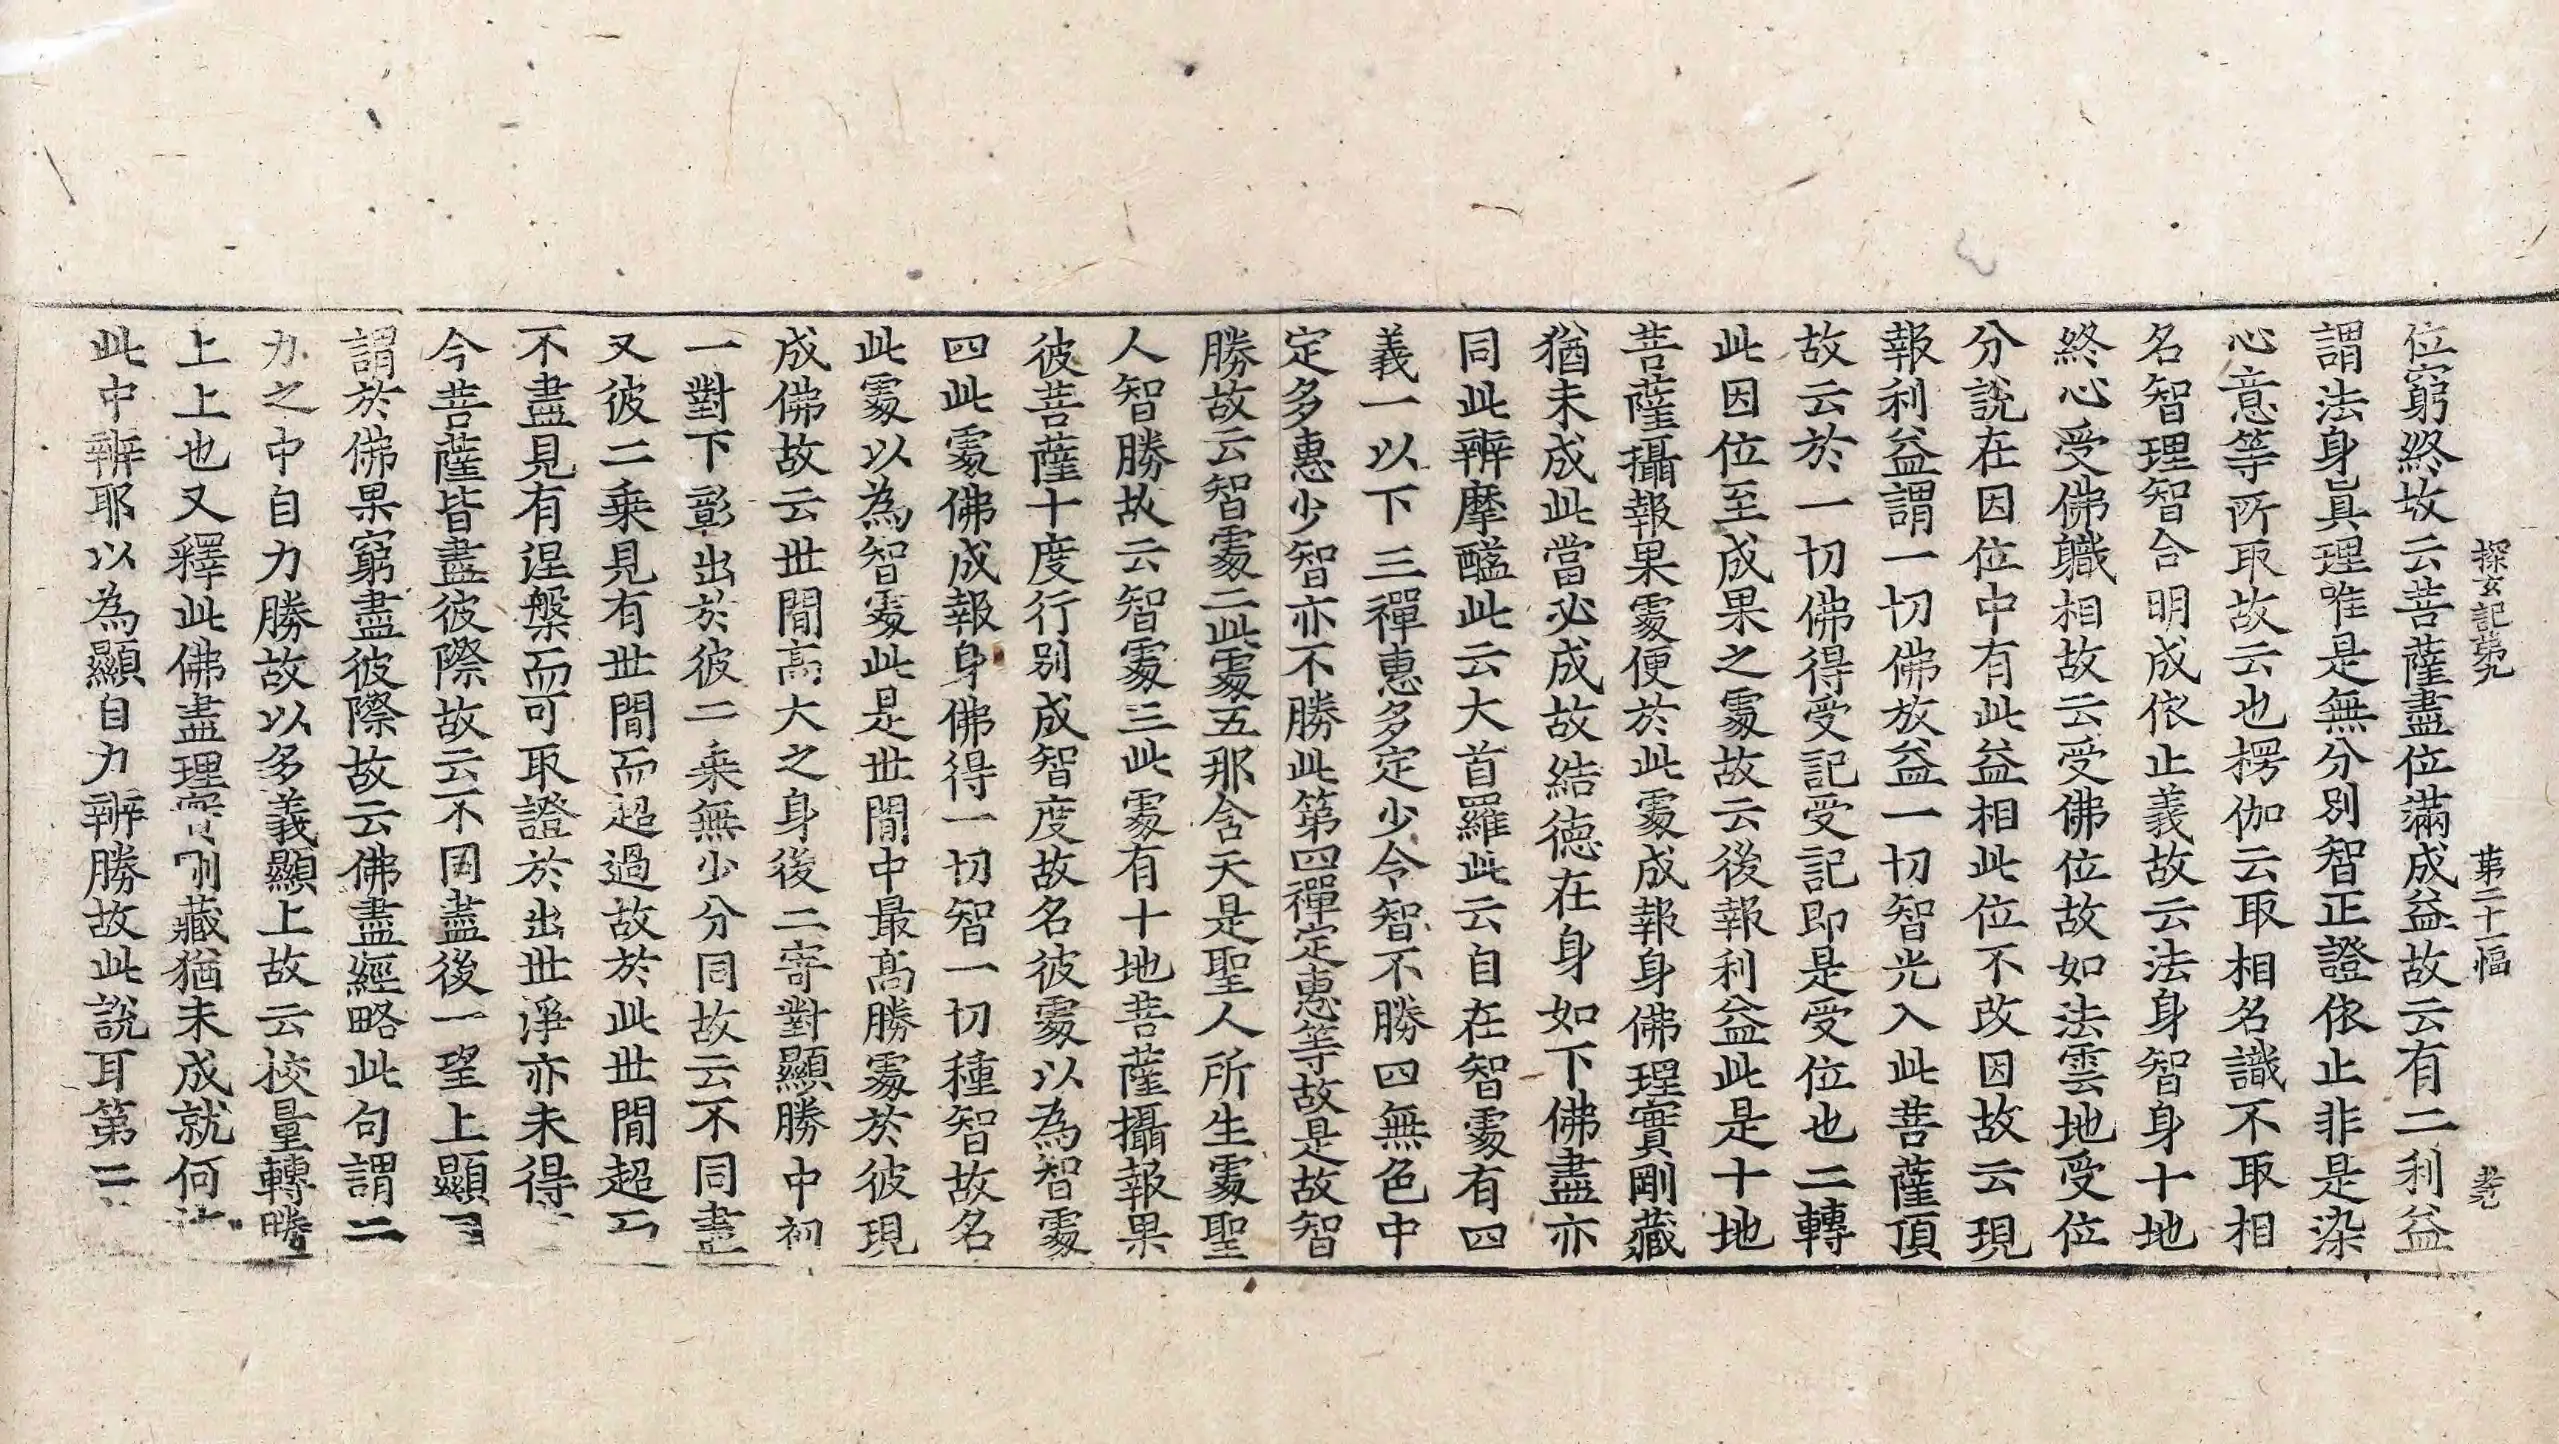 探玄記第九 第二十一幅
位窮終故云菩薩盡位滿成益故云有二利益
謂法身眞理唯是無分別智正證依止非是染
心意等所取故云也楞伽云取相名識不取相
名智理智合明成依止義故云法身智身十地
終心受佛職相故云受佛位故如法雲地受位
分說在因位中有此益相此位不改因故云現
報利益謂一切佛放益一切智光入此菩薩頂
故云於一切佛得受記受記即是受位也二轉
此因位至成果之處故云後報利益此是十地
菩薩攝報果處便於此處成報身佛理實剛藏
猶未成此當必成故結德在身如下佛盡亦
同此辨摩醯此云大首羅此云自在智處有四
義一以下三禪惠多定少令智不勝四無色中
定多惠少智亦不勝此第四禪定惠等故是故智
勝故云智處二此處五那含天是聖人所生處聖
人智勝故云智處三此處有十地菩薩攝報果
彼菩薩十度行別成智度故名彼處以為智處
四此處佛成報身佛得一切智一切種智故名
此處以為智處此是世間中最高勝處於彼現
成佛故云世間高大之身後二寄對顯勝中初
一對下彰出於彼二乘無少分同故云不同盡
又彼二乘見有世間而超過故於此世間超
不盡見有涅槃而可取證於出世淨亦未得
今菩薩皆盡彼際故云不同盡後一望上顯
謂於佛果窮盡彼際故云佛盡經略此句謂二
力之中自力勝故以多義顯上故云校量轉勝
上上也又釋此佛盡理實剛藏猶未成就何
此中辨耶以為顯自力辨勝故此說耳第二